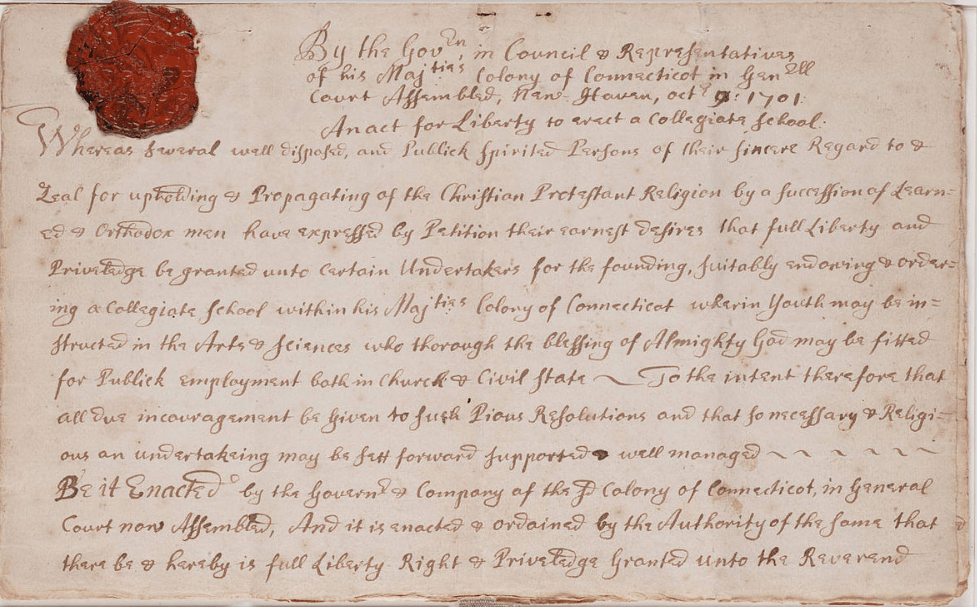 By the Govrn, in Council & Representatives
of his Majties Colony of Connecticot in Genrll
Court Assembled, New-Haven, octr 9: 1701:
An act for Liberty to erect a Collegiate School:
Whereas several well disposed, and Publick spirited Persons of their sincere Regard to &
Zeal for upholding & Propagating of the Christian Protestant Religion by a succession of Learn=
ed & Orthodox men have expressed by Petition their earnest desires that full Liberty and
Priveledge be granted unto Certain Undertakers for the founding, suitably endowing & order=
ing a Collegiate School within his Majties Colony of Connecticot wherin Youth may be in=
structed in the Arts & Sciences who thorough the blessing of Almighty God may be fitted
for Publick employment both in Church & Civil State ~ To the intent therefore that
all due incouragement be Given to such Pious Resolutions and that so necessary & Religi=
ous an undertakeing may be sett forward supported & well managed ~ ~ ~ ~ ~
Be it Enacted by the Governr & Company of the sd Colony of Connecticot, in General
Court now Assembled, And it is enacted & ordained by the Authority of the same that
there be & hereby is full Liberty Right & Priveledge Granted unto the Reverend